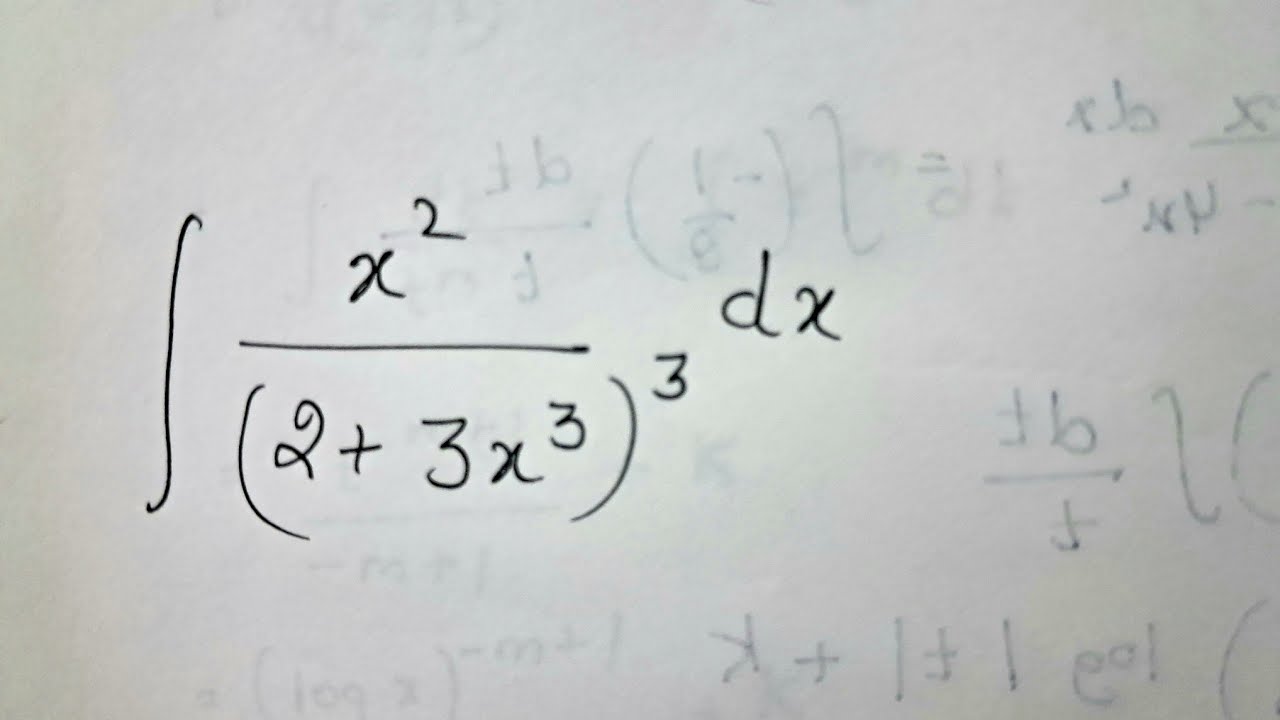 ∫ x² / (2 + 3x³)³ dx